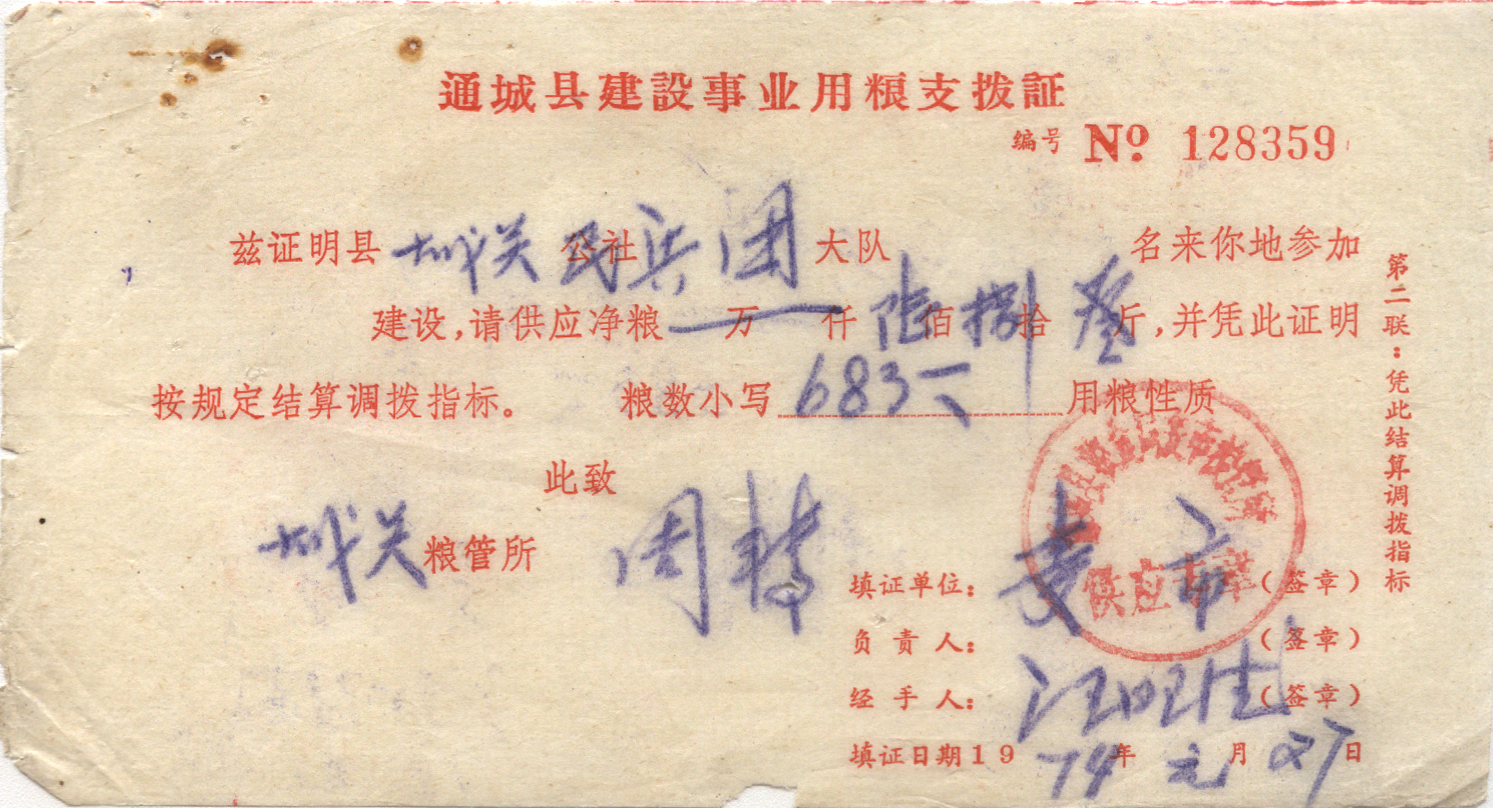 通城县建設事业用粮支拨証
编号 № 128359
兹证明县城关公社民兵团大队 名来你地参加
建设,请供应净粮 万 仟陆佰捌拾叁斤,并凭此证明
按规定结算调拨指标。 粮数小写 683 用粮性质
此致
城关粮管所
填证单位: 麦市 (签章)
负责人: (签章)
经手人: 汪旺生 (签章)
填证日期1974年元月27日
供应专章
第二联:凭此结算调拨指标